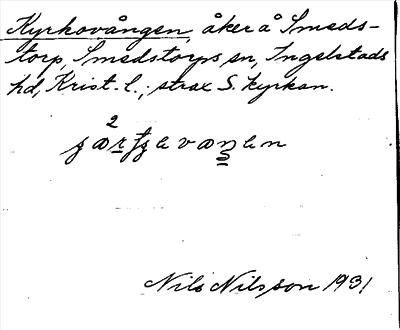 Kyrkovången, åker å Smeds-
torp, Smedstorps sn, Ingelstads
hd, Krist. l.; strax S. kyrkan.
Nils Nilsson 1931